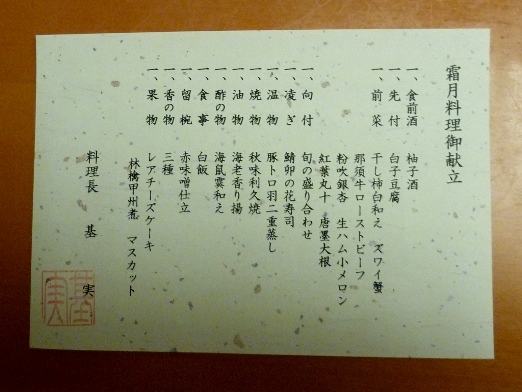 霜月料理御献立
一、食前酒 柚子酒
一、先付 白子豆腐
一、前菜 干し柿白和え ズワイ蟹
那須牛ローストビーフ
粉吹銀杏 生ハム小メロン
紅葉丸十 唐墨大根
一、向付 旬の盛り合わせ
一、凌ぎ 鯖卯の花寿司
一、温物 豚トロ羽二重蒸し
一、焼物 秋味利久焼
一、油物 海老香り揚
一、酢の物 海鼠霙和え
一、食事 白飯
一、留椀 赤味噌仕立
一、香の物 三種
一、果物 レアチーズケーキ
林檎甲州煮 マスカット
料理長 基 実